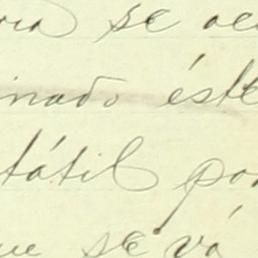 ra se ac
inado éste
tátil por
ue se vá